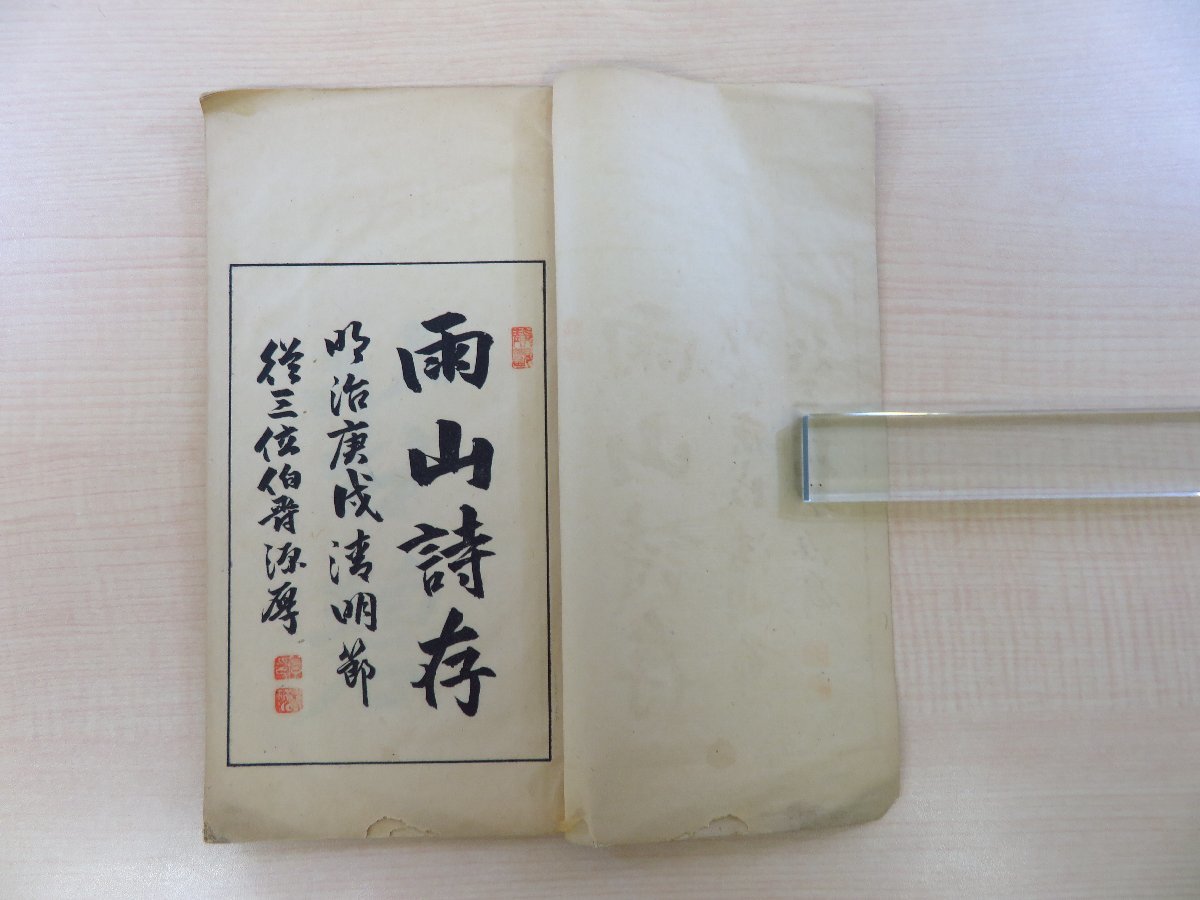 雨山詩存
明治庚戌清明節
從三位伯爵源厚